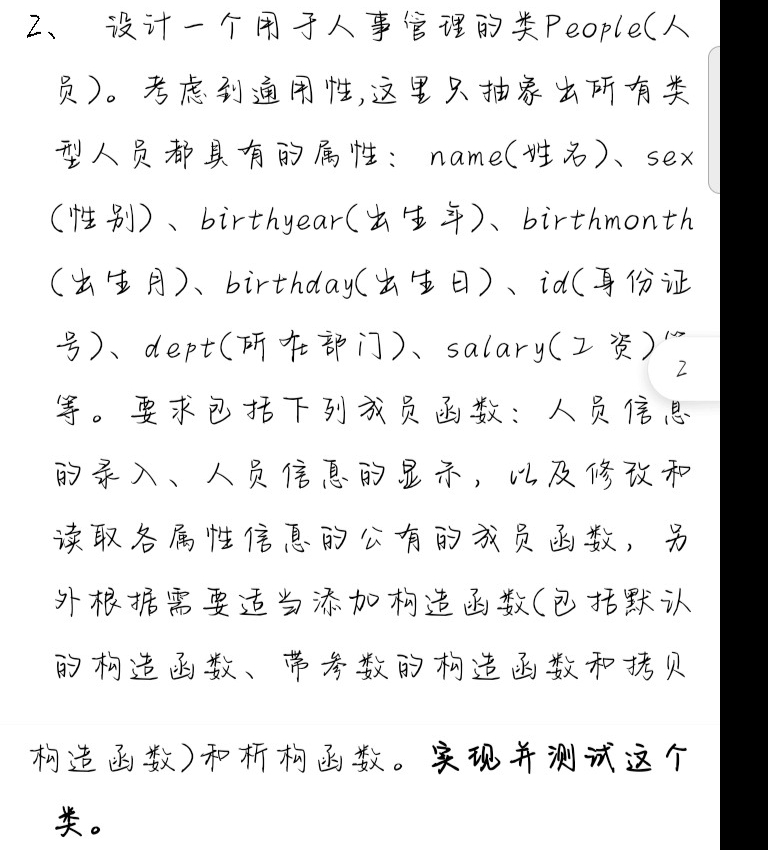 2、 设计一个用于人事管理的类People(人
员)。考虑到通用性,这里只抽象出所有类
型人员都具有的属性: name(姓名)、sex
(性别)、birthyear(出生年)、birthmonth
(出生月)、birthday(出生日)、id(身份证
号)、dept(所在部门)、salary(工资)等
2
等。要求包括下列成员函数: 人员信息
的录入、人员信息的显示, 以及修改和
读取各属性信息的公有的成员函数, 另
外根据需要适当添加构造函数(包括默认
的构造函数、带参数的构造函数和拷贝
构造函数)和析构函数。实现并测试这个
类。